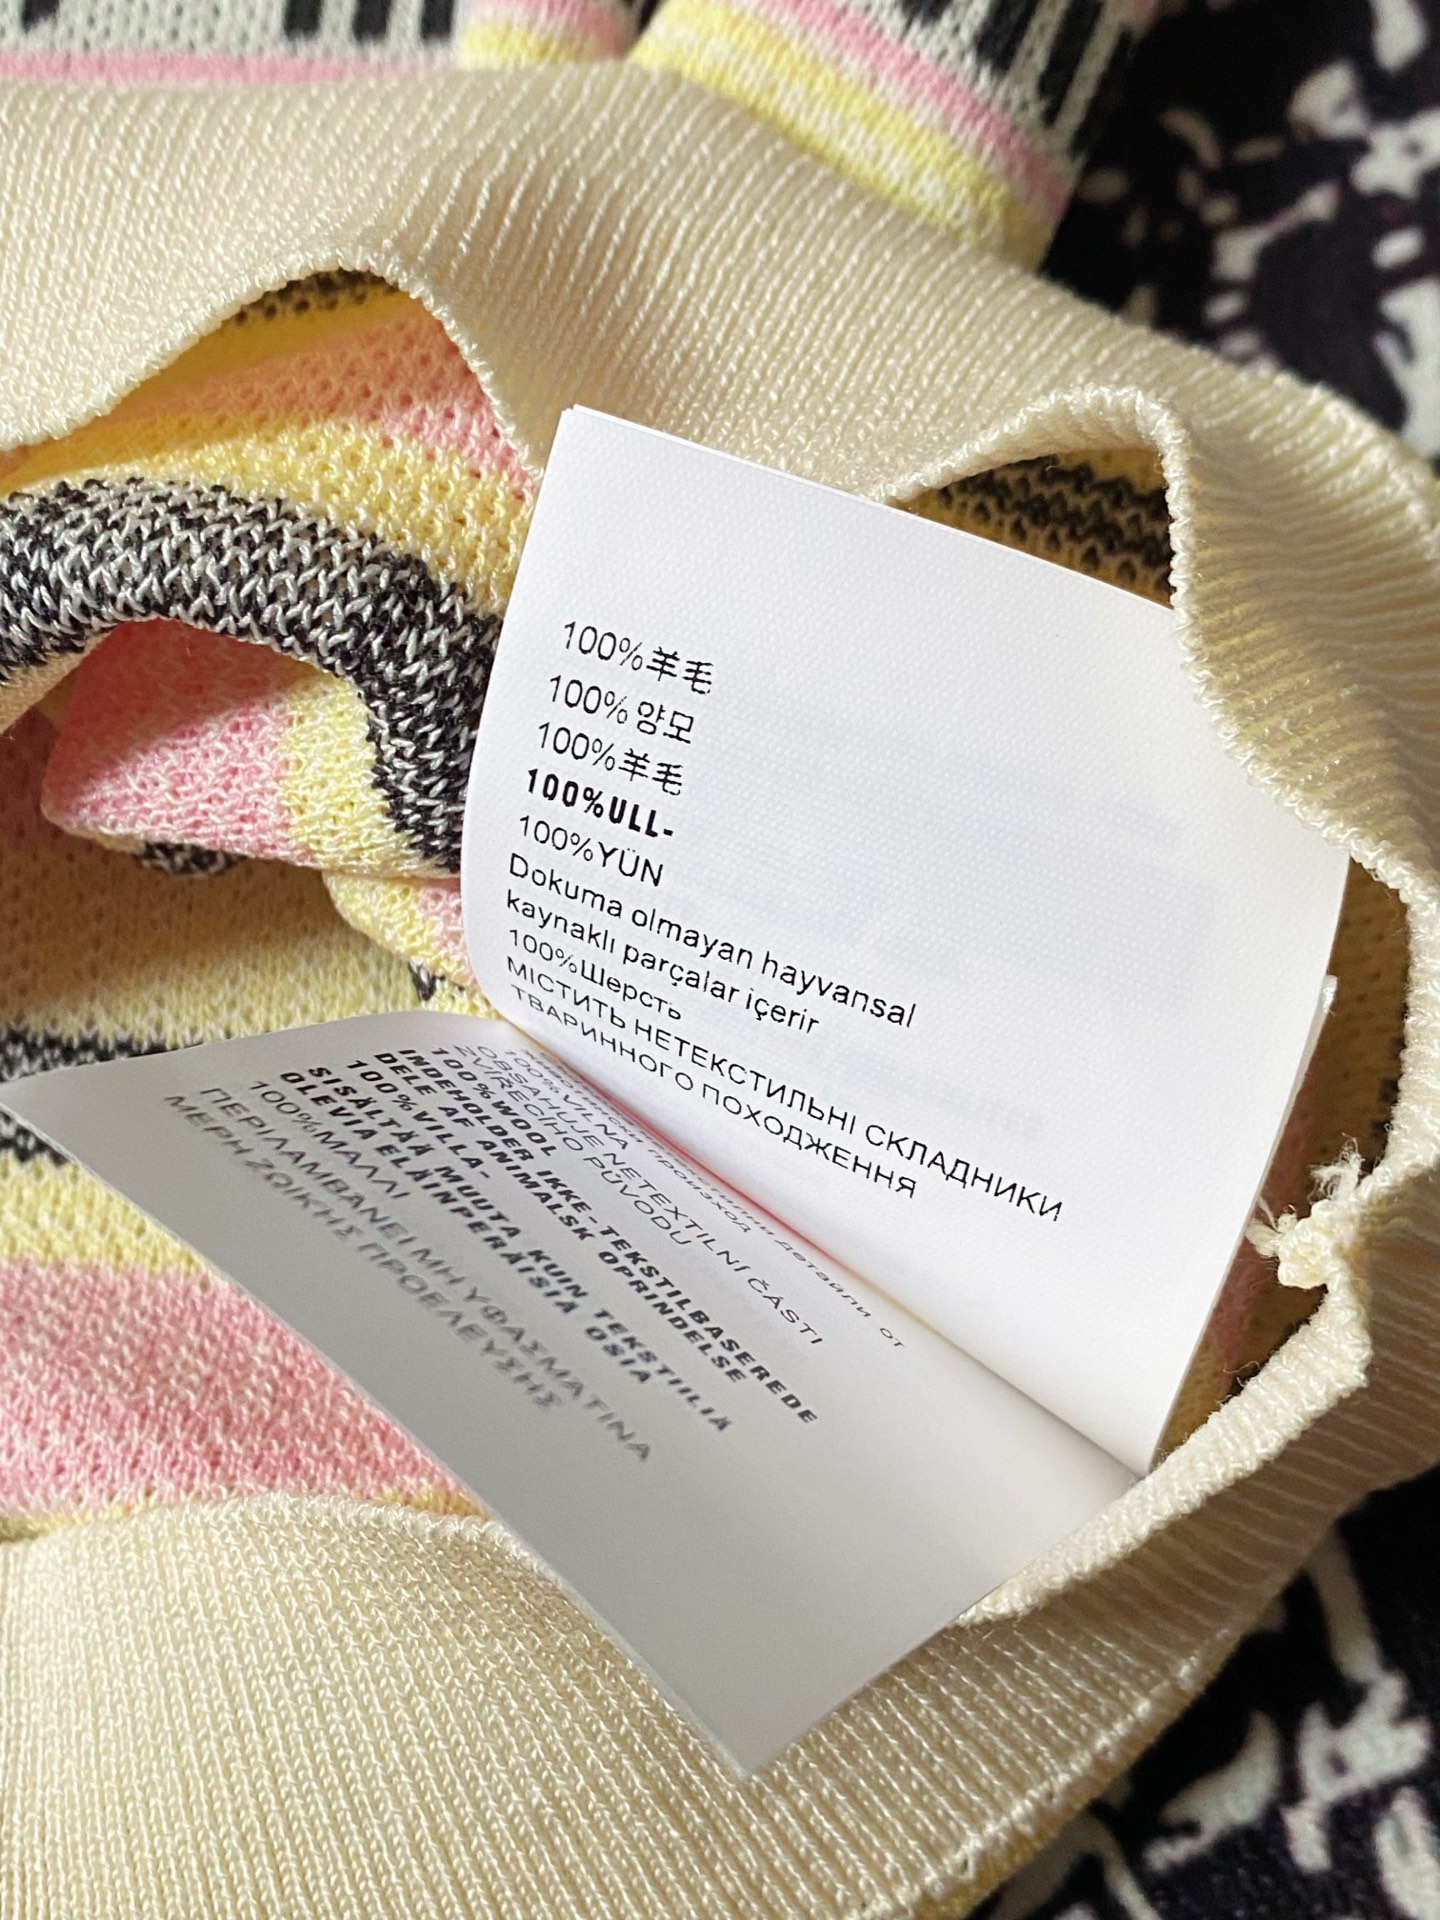 100%羊毛
100%양모
100%羊毛
100%ULL-
100%YÜN
Dokuma olmayan hayvansal
kaynaklı parçalar içerir
100%Шерсть
МІСТИТЬ НЕТЕКСТИЛЬНІ СКЛАДНИКИ
ТВАРИННОГО ПОХОДЖЕННЯ
100%VLNA
OBSAHUJE NETEXTILNÍ ČÁSTI
ZVÍŘECÍHO PŮVODU
100%WOOL
INDEHOLDER IKKE-TEKSTILBASEREDE
DELE AF ANIMALSK OPRINDELSE
100%VILLA-
SISÄLTÄÄ MUUTA KUIN TEKSTIILIÄ
OLEVIA ELÄINPERÄISIÄ OSIA
100%ΜΑΛΛΙ
ΠΕΡΙΛΑΜΒΑΝΕΙ ΜΗ ΥΦΑΣΜΑΤΙΝΑ
ΜΕΡΗ ΖΩΙΚΗΣ ΠΡΟΕΛΕΥΣΗΣ